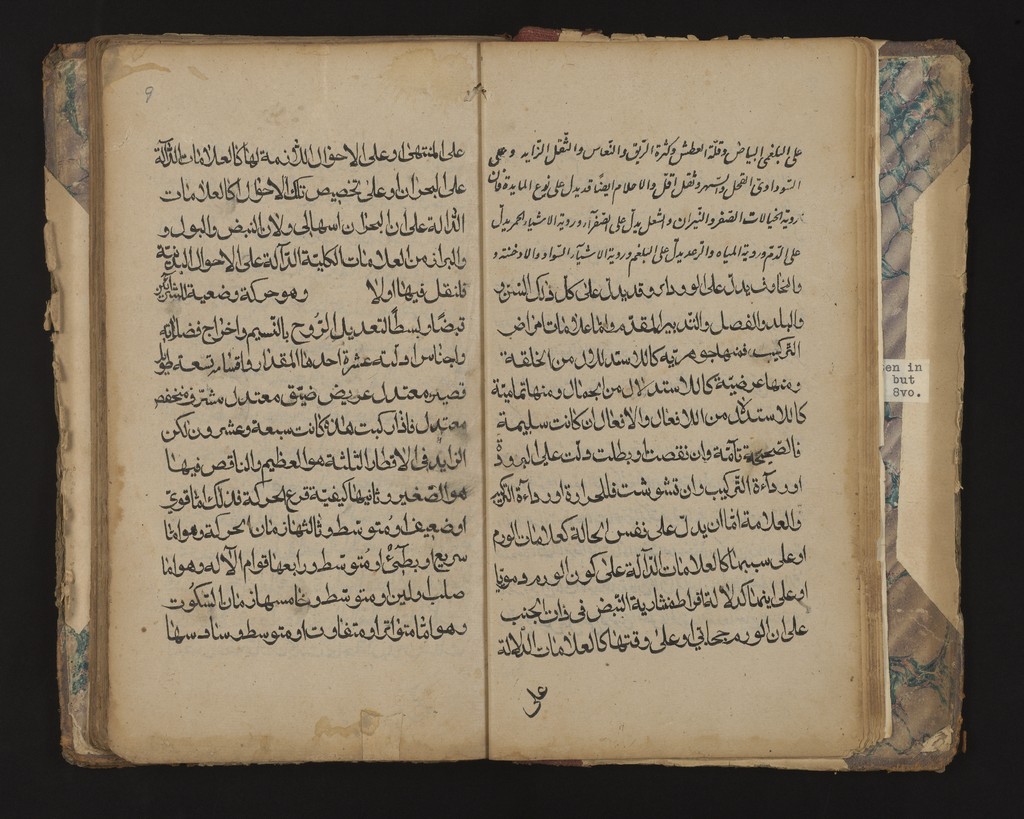 على البلغمى البياض وقلة العطش وكثرة الريق والنعاس والثقل الزايد وعلى
السوداوى القحل والسهر وثقل اقل والاحلام ايضا قد يدل على نوع المادة فان
روية الخيالات الصفر والنيران والشعل يدل على الصفرآء وروية الاشيآء الحمر يدل
على الدم وروية المياه والرعد يدل على البلغم وروية الاشيآء السواد والادخنة و
والمخاوف يدل على السوداء وقد يدل على كل ذلك السن و
والبلد والفصل والتدبير المقدم واما علامات امراض
التركيب فمنها جوهرية كالاستدلال من الخلقة
ومنها عرضية كالاستدلال من الجمال ومنها تمامية
كالاستدلال من الافعال والافعال ان كانت سليمة
فالصحة تآمة وان نقصت او بطلت دلت على البرودة
او ردآءة التركيب وان تشوشت فللحرارة او ردآءة التركيب
والعلامة اما ان يدل على نفس الحالة كعلامات الورم
او على سببها كالعلامات الدآلة على كون الورم دمويا
او على اينها كدلالة افراط منشارية النبض فى ذات الجنب
على ان الورم حجابى او على وقتها كالعلامات الدالة
على
9
على المنتهى او على الاحوال اللازمة لها كالعلامات الدالة
على البحران او على تخصيص تلك الاحوال كالعلامات
الدالة على ان البحران اسهالى ولان النبض والبول و
والبراز من العلامات الكلية الدآلة على الاحوال البدنية
فلنقل فيها اولا وهو حركة وضعية للشرائين
قبضا وبسطا لتعديل الروح بالنسيم واخراج فضلاته
واجناس ادلته عشرة احدها المقدار واقسامه تسعة طويل
قصير معتدل عريض ضيق معتدل مشرف منخفض
معتدل فاذا ركبت هذه كانت سبعة وعشرون لكن
الزايد فى الاقطار الثلثة هو العظيم والناقص فيها
هو الصغير وثانيها كيفية قرع الحركة فذلك اما قوى
او ضعيف او متوسط وثالثها زمان الحركة وهو اما
سريع او بطىء او متوسط ورابعها قوام الآلة وهو اما
صلب او لين او متوسط وخامسها زمان السكون
وهو اما متواتر او متفاوت او متوسط وسادسها
en in
but
8vo.